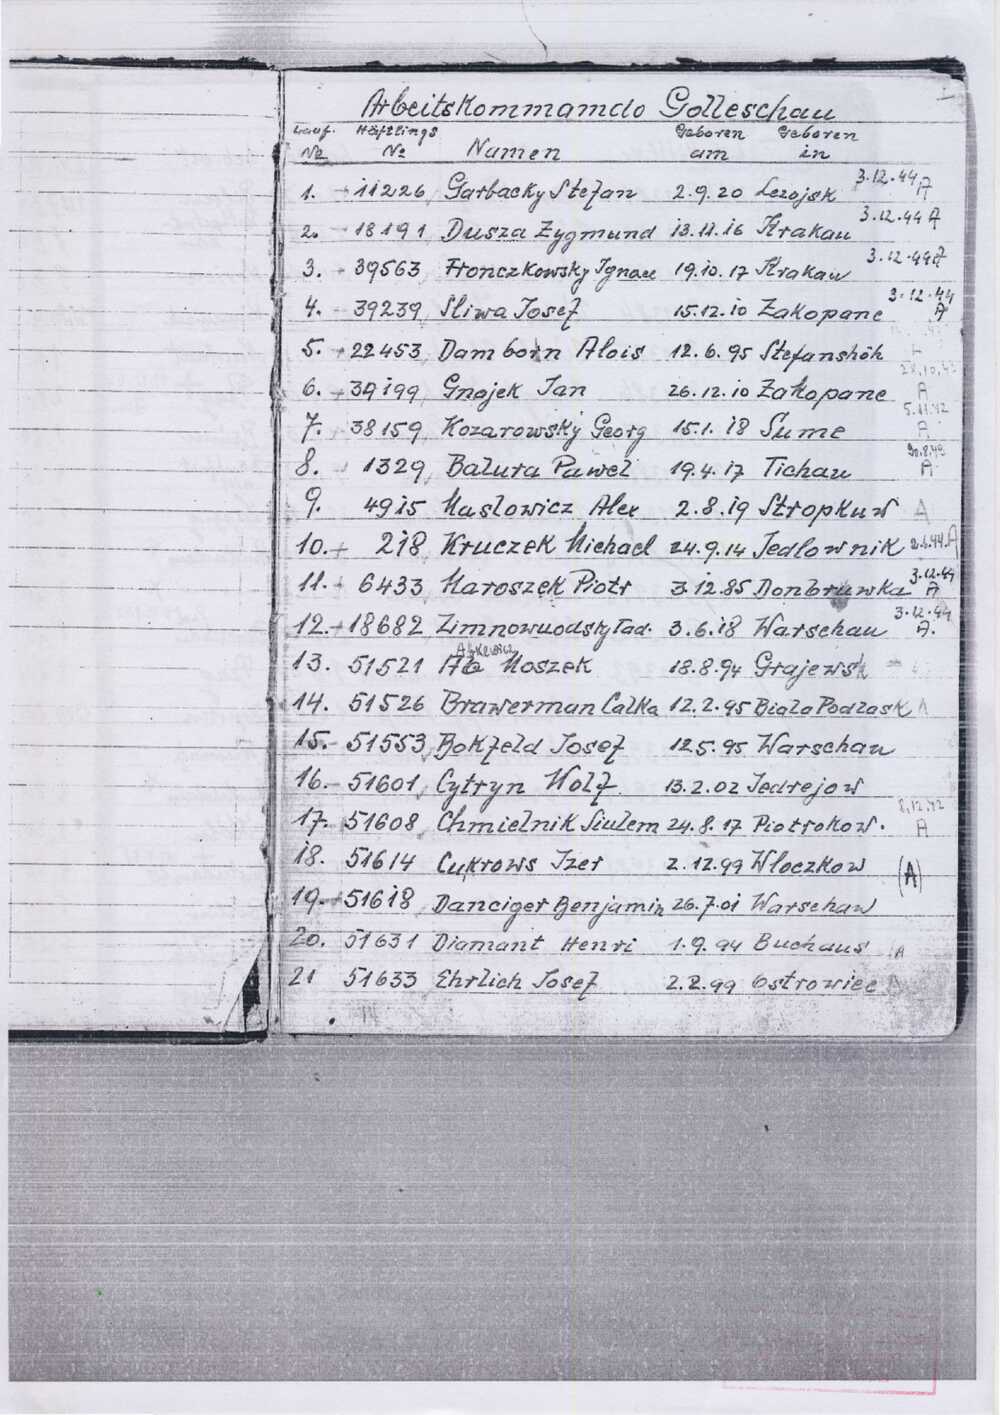 Arbeitskommamdo Golleschau
Lauf. Häftlings Geboren Geboren
No No Namen am in
1. 11226 Garbacky Stefan 2.9.20 Lezojsk 3.12.44 A
2. 18191 Dusza Zygmund 13.11.16 Krakau 3.12.44 A
3. 39563 Fronczkowsky Ignac 19.10.17 Krakau 3.12.44 A
4. 39239 Sliwa Josef 15.12.10 Zakopane 3.12.44 A
5. 22453 Damborn Alois 12.6.95 Stefanshöh
6. 39199 Gnojek Jan 26.12.10 Zakopane A
7. 38159 Kozarowsky Georg 15.1.18 Sume 5.11.42 A
8. 1329 Batura Pawel 19.4.17 Tichau A
9. 4915 Maslowicz Alex 2.8.19 Stropkuw A
10. 218 Kruczek Michael 24.9.14 Jedlownik A
11. 6433 Maroszek Piotr 3.12.85 Donbruwka 3.12.44 A
12. 18682 Zimnowuodsky Tad. 3.6.18 Warschau 3.12.44 A.
13. 51521 Ab Moszek 18.8.94 Grajewsk
14. 51526 Brawerman Calka 12.2.95 Biala Podlask A
15. 51553 Bokfeld Josef 12.5.95 Warschau
16. 51601 Cytryn Wolf 13.2.02 Jedrejow
17. 51608 Chmielnik Siulem 24.8.17 Piotrokow. 8.12.42 A
18. 51614 Cukrows Izer 2.12.99 Wloczkow (A)
19. 51618 Danciger Benjamin 26.7.01 Warschaw
20. 51631 Diamant Henri 1.9.94 Buchaus A
21 51633 Ehrlich Josef 2.2.99 Ostrowiec A